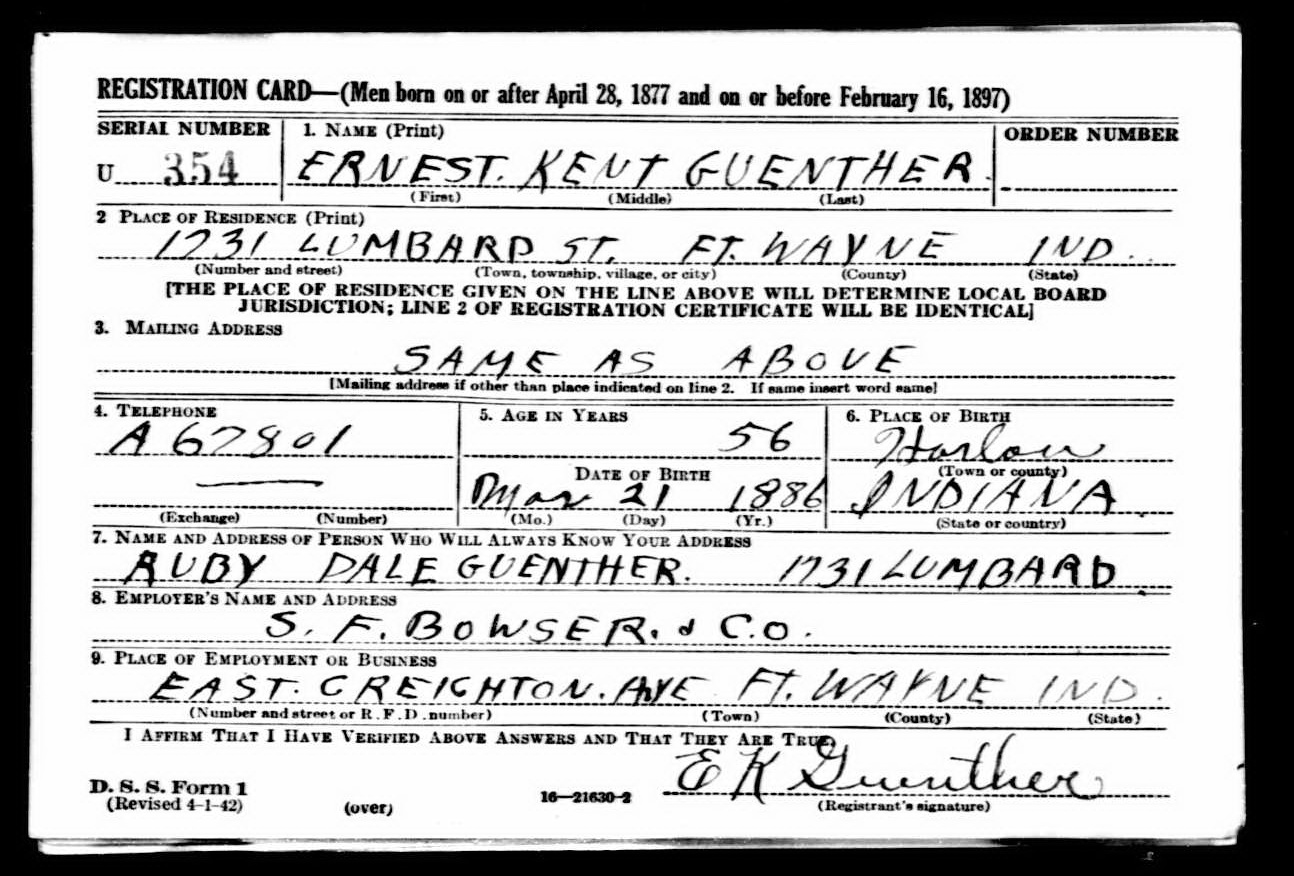 REGISTRATION CARD—(Men born on or after April 28, 1877 and on or before February 16, 1897)
SERIAL NUMBER 1. NAME (Print) ORDER NUMBER
U 354 ERNEST. KENT GUENTHER.
(First) (Middle) (Last)
2 PLACE OF RESIDENCE (Print)
1731 LUMBARD ST. FT. WAYNE IND.
(Number and street) (Town, township, village, or city) (County) (State)
[THE PLACE OF RESIDENCE GIVEN ON THE LINE ABOVE WILL DETERMINE LOCAL BOARD
JURISDICTION; LINE 2 OF REGISTRATION CERTIFICATE WILL BE IDENTICAL]
3. MAILING ADDRESS
SAME AS ABOVE
[Mailing address if other than place indicated on line 2. If same insert word same]
4. TELEPHONE 5. AGE IN YEARS 6. PLACE OF BIRTH
A 67801 56 Harlan
DATE OF BIRTH (Town or county)
Mar 21 1886 INDIANA
(Exchange) (Number) (Mo.) (Day) (Yr.) (State or country)
7. NAME AND ADDRESS OF PERSON WHO WILL ALWAYS KNOW YOUR ADDRESS
RUBY DALE GUENTHER. 1731 LUMBARD
8. EMPLOYER'S NAME AND ADDRESS
S. F. BOWSER. & C.O.
9. PLACE OF EMPLOYMENT OR BUSINESS
EAST. CREIGHTON. AVE FT. WAYNE IND.
(Number and street or R. F. D. number) (Town) (County) (State)
I AFFIRM THAT I HAVE VERIFIED ABOVE ANSWERS AND THAT THEY ARE TRUE.
E K Guenther
D. S. S. Form 1
(Revised 4-1-42) (over) 16—21630-2 (Registrant's signature)